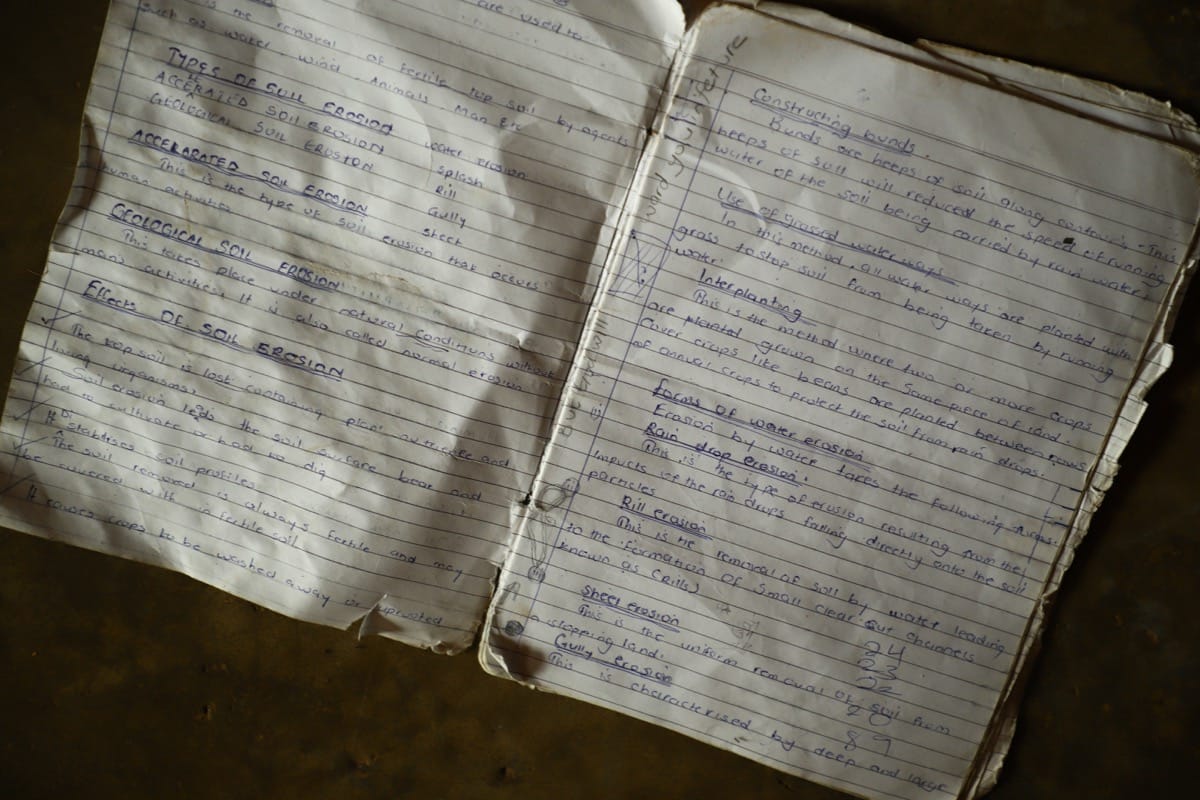 are used to
is the removal of fertile top soil by agents
such as water wind. Animals Man Etc
TYPES OF SOIL EROSION
ACCERATED SOIL EROSION water erosion
GEOLOGICAL SOIL EROSION splash
Rill
ACCELARATED SOIL EROSION Gully
This is the type of soil erosion that occurs sheet
human activities
GEOLOGICAL SOIL EROSION
This takes place under natural conditions without
mans activities. It is also called normal erosion.
Effects OF SOIL EROSION
The top soil is lost containing plant nutrients and
living organisms
Soil erosion leds the soil surface bear and
had to cultivate or had to dig
It Distabilises soil profiles
The soil removed is always fertile and may
be covered with in fertile soil.
It causes crops to be washed away or uprooted
Constructing bunds.
Bunds are heeps of soil along contours. This
heeps of soil will reduced the speed of running
water of the soil being carried by rain water.
Use of grassed water ways
In this method all water ways are planted with
grass to stop soil from being taken by running
water.
Interplanting
This is the method where two or more crops
are planted grown on the same piece of land.
Cover crops like beans are planted between rows
of annual crops to protect the soil from rain drops.
Forms of water erosion
Erosion by water takes the following forms:
Rain drop erosion.
This is the type of erosion resulting from the
impacts of the rain drops falling directly onto the soil
particles
Rill erosion
This is the removal of soil by water leading
to the formation of small clear cut channels
known as (rills)
Sheet erosion
This is the uniform removal of soil from
a slopping land.
Gully erosion
This is characterised by deep and large
24
23
22
20
89